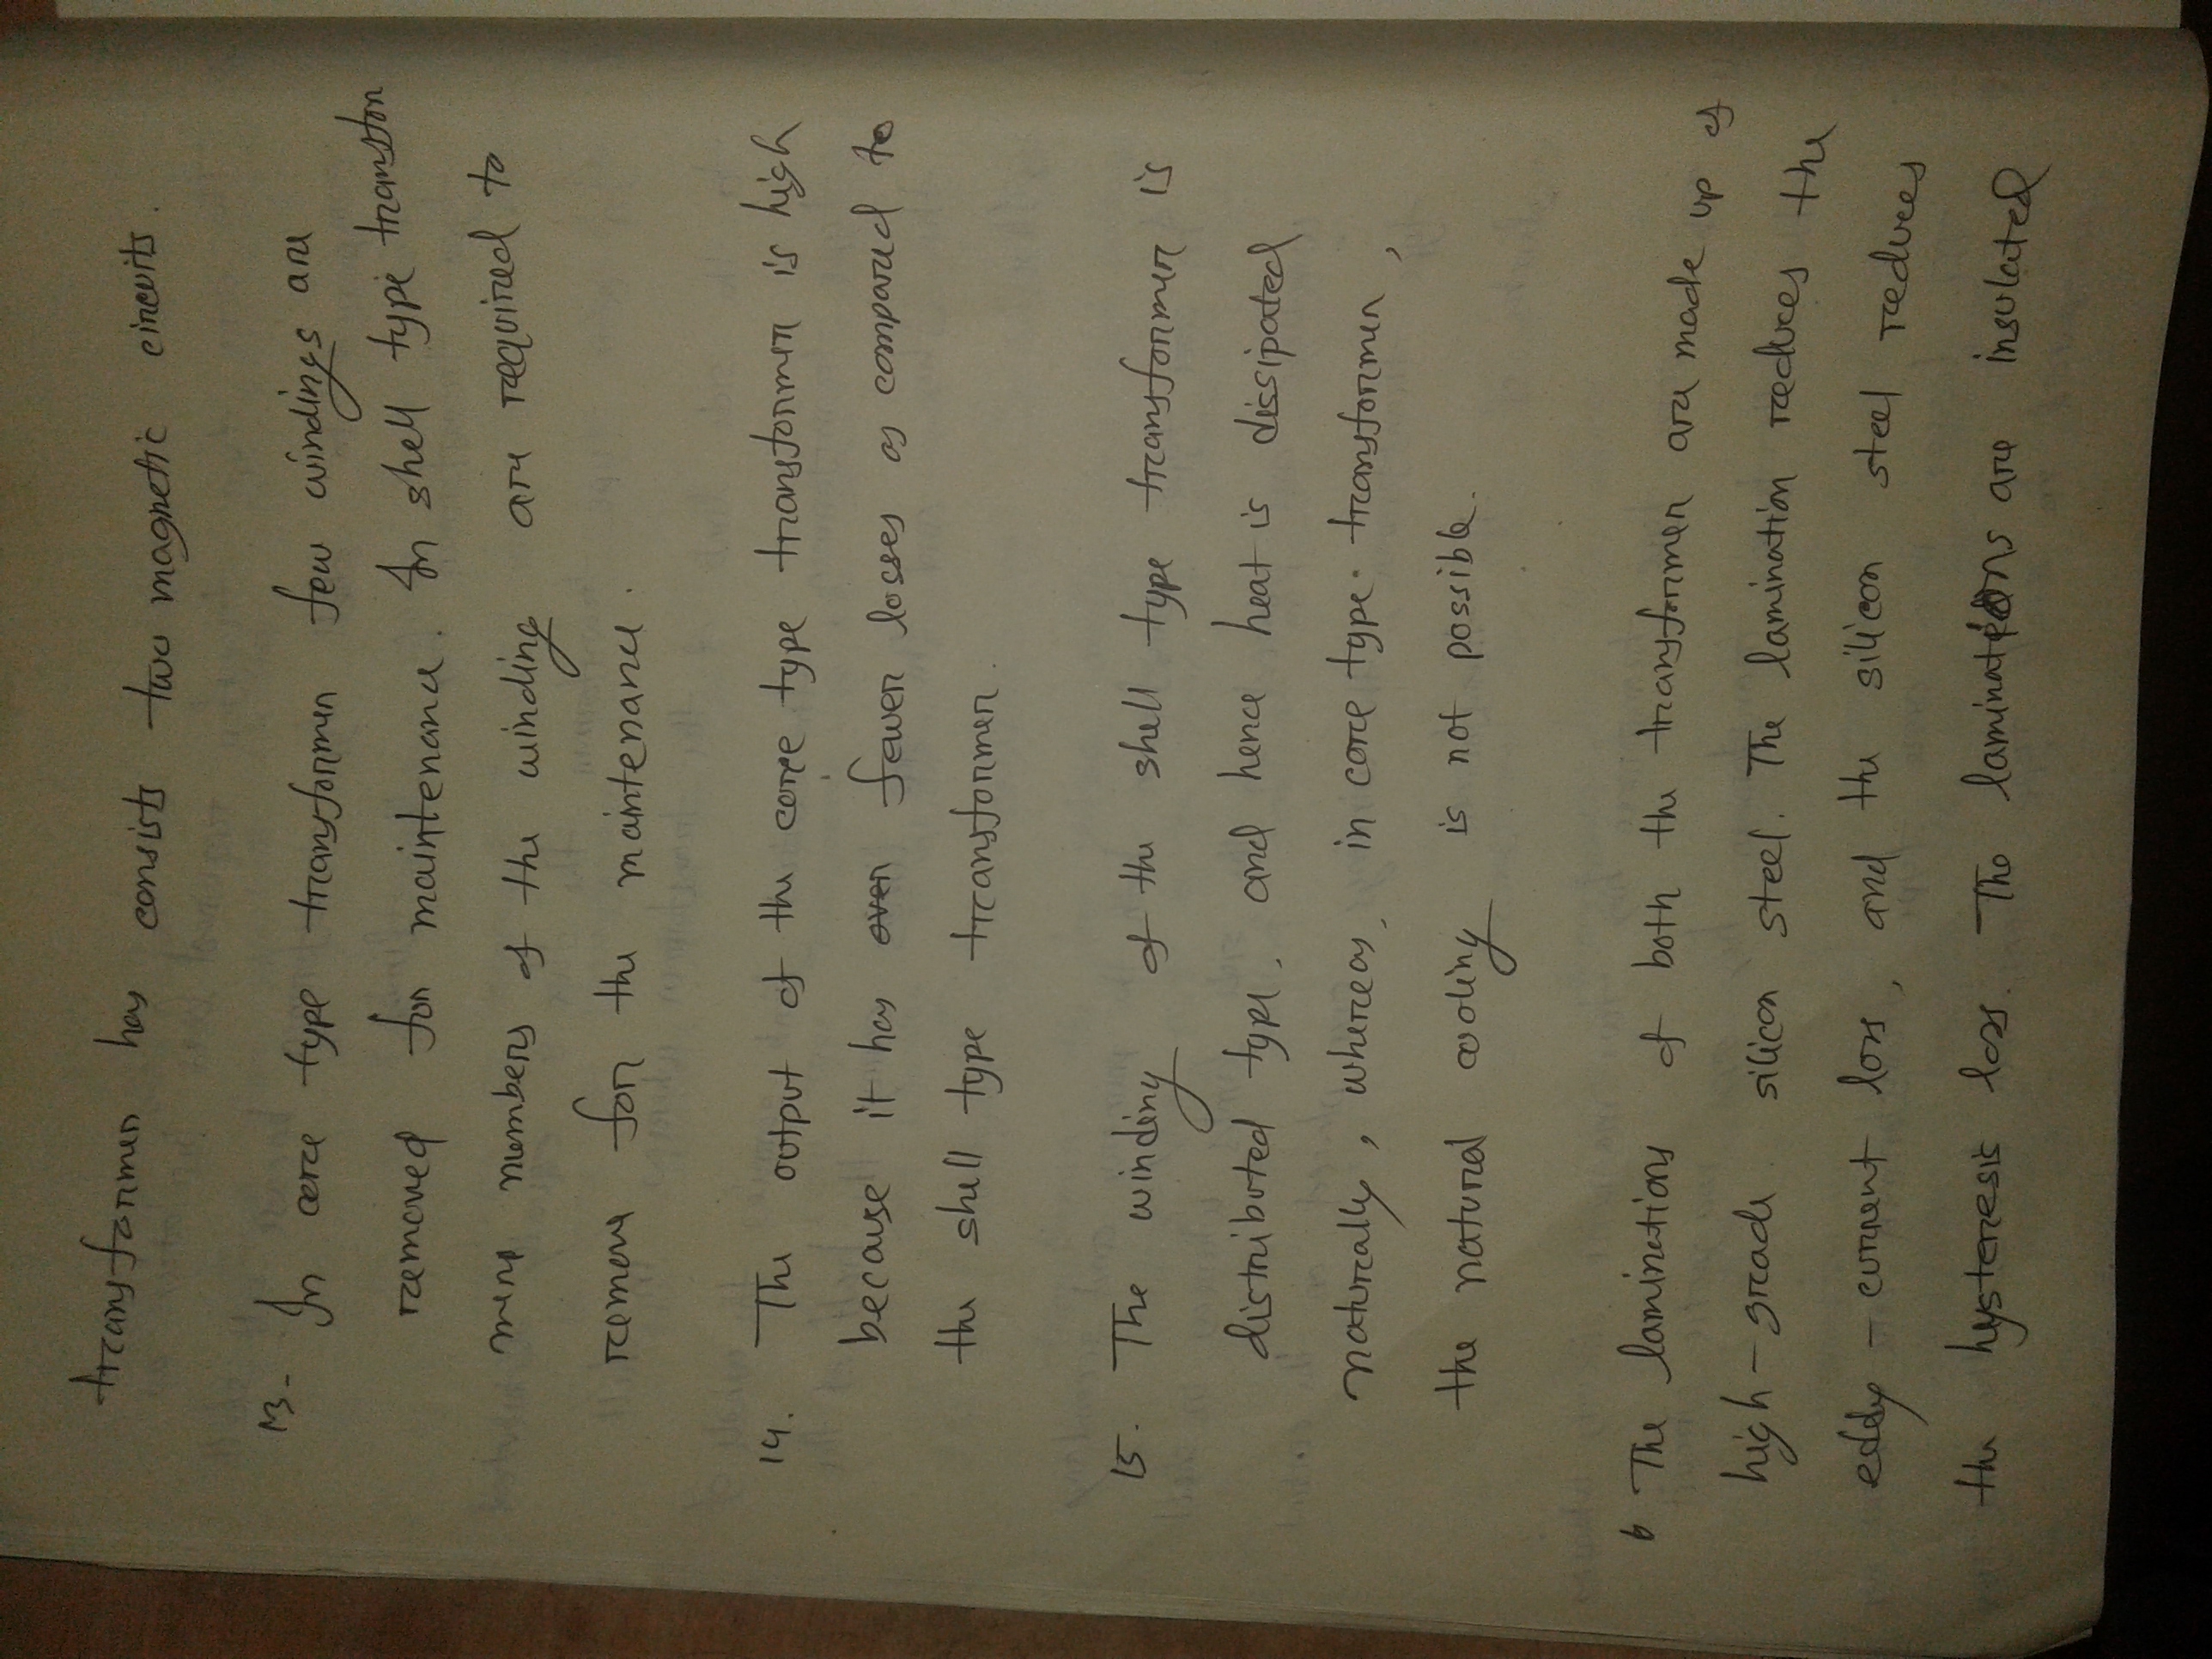 transformer has consists two magnetic circuits.
13- In core type transformer few windings are
removed for maintenance. In shell type transfor
mers numbers of the winding are required to
remove for the maintenance.
14. The output of the core type transformer is high
because it has over fewer losses as compared to
the shell type transformer.
15. The winding of the shell type transformer is
distributed type, and hence heat is dissipated
naturally, whereas, in core type transformer,
the natural cooling is not possible.
6 The laminations of both the transformer are made up of
high-grade silicon steel. The lamination reduces the
eddy-current loss, and the silicon steel reduces
the hysteresis loss. The laminations are insulated